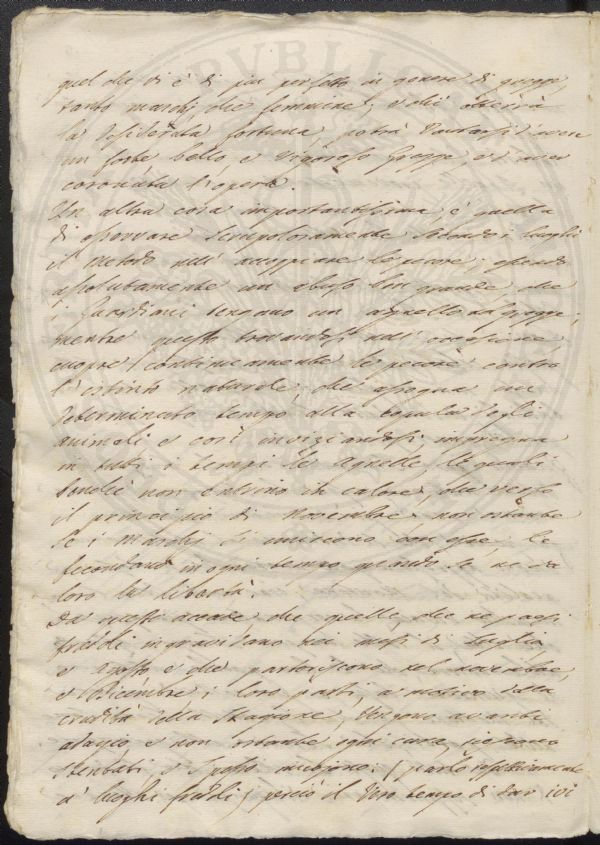 quel che vi è di più perfetto in genere di gregge,
tanto maschj, che femmine; e chi otterrà
la desiderata fortuna, potrà vantarsi d'aver
un forte bello, e vigoroso Gregge, e d'aver
coronata l'opera.
Un altra cosa importantissima, è quella
di osservare scrupolosamente secondo i luoghi
il metodo nell' accoppiare le pecore; essendo
assolutamente un abuso ben grande, che
i Guardiani tengano un agnello ne greggi;
mentre questo trovandosi nell' occasione,
cuopre continuamente le pecore contro
l'istinto naturale, che assegna un
determinato tempo alla copula degli
animali e così inviziandosi impregna
in tutti i tempi le Agnelle, le quali
benchè non entrino in calore, che verso
il principio di Novembre non ostante
se i maschj si uniscono con esse, le
fecondano in ogni tempo quando se ne dà
loro la libertà.
Da questo accade che quelle, che ne paesi
freddi ingravidano nei mesi di Luglio,
e Agosto e che partoriscono nel novembre,
e Dicembre; i loro parti, a motivo della
crudità della Stagione, vengono avanti
adagio e non ostante ogni cura, riescono
stentati, e spesso muojono: (parlo rispettivamente
a' luoghi freddi) perciò il vero tempo di dar ivi